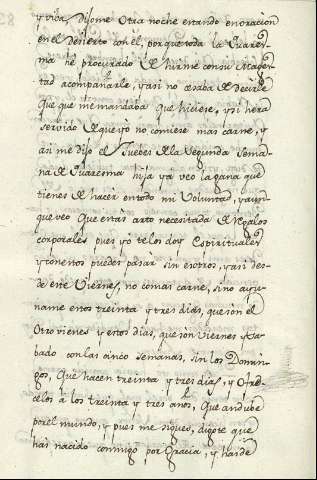 y vida, dijome Otra noche estando en oracion
en el desierto con el, porque toda la Quares-
ma he procurado hirme con su Mages-
tad acompañarle, y asi no cesaba de decirle
Que que me mandaba que hiciese, y si hera
servido de que yo no comiese mas carne, y
asi me dijo el Juebes de la segunda sema-
na de Quaresma hija ya veo la gana que
tienes de hacer en todo mi Voluntad, y aun-
que veo Que estas arto necesitada de regalos
corporales pues yo te los doy Espirituales
y con estos puedes pasar sin esotros, y asi des-
de este Viernes, no comas carne, sino ayu-
name estos treinta y tres dias, que son el
Otro vienes y estos dias, que son Viernes y Sa-
bado con las cinco semanas, sin los Domin-
gos, Que hacen treinta y tres dias, y Ofre-
celos a los treinta y tres años, Que andube
por el mundo, y pues me sigues, digote que
has nacido conmigo por Gracia, y has de